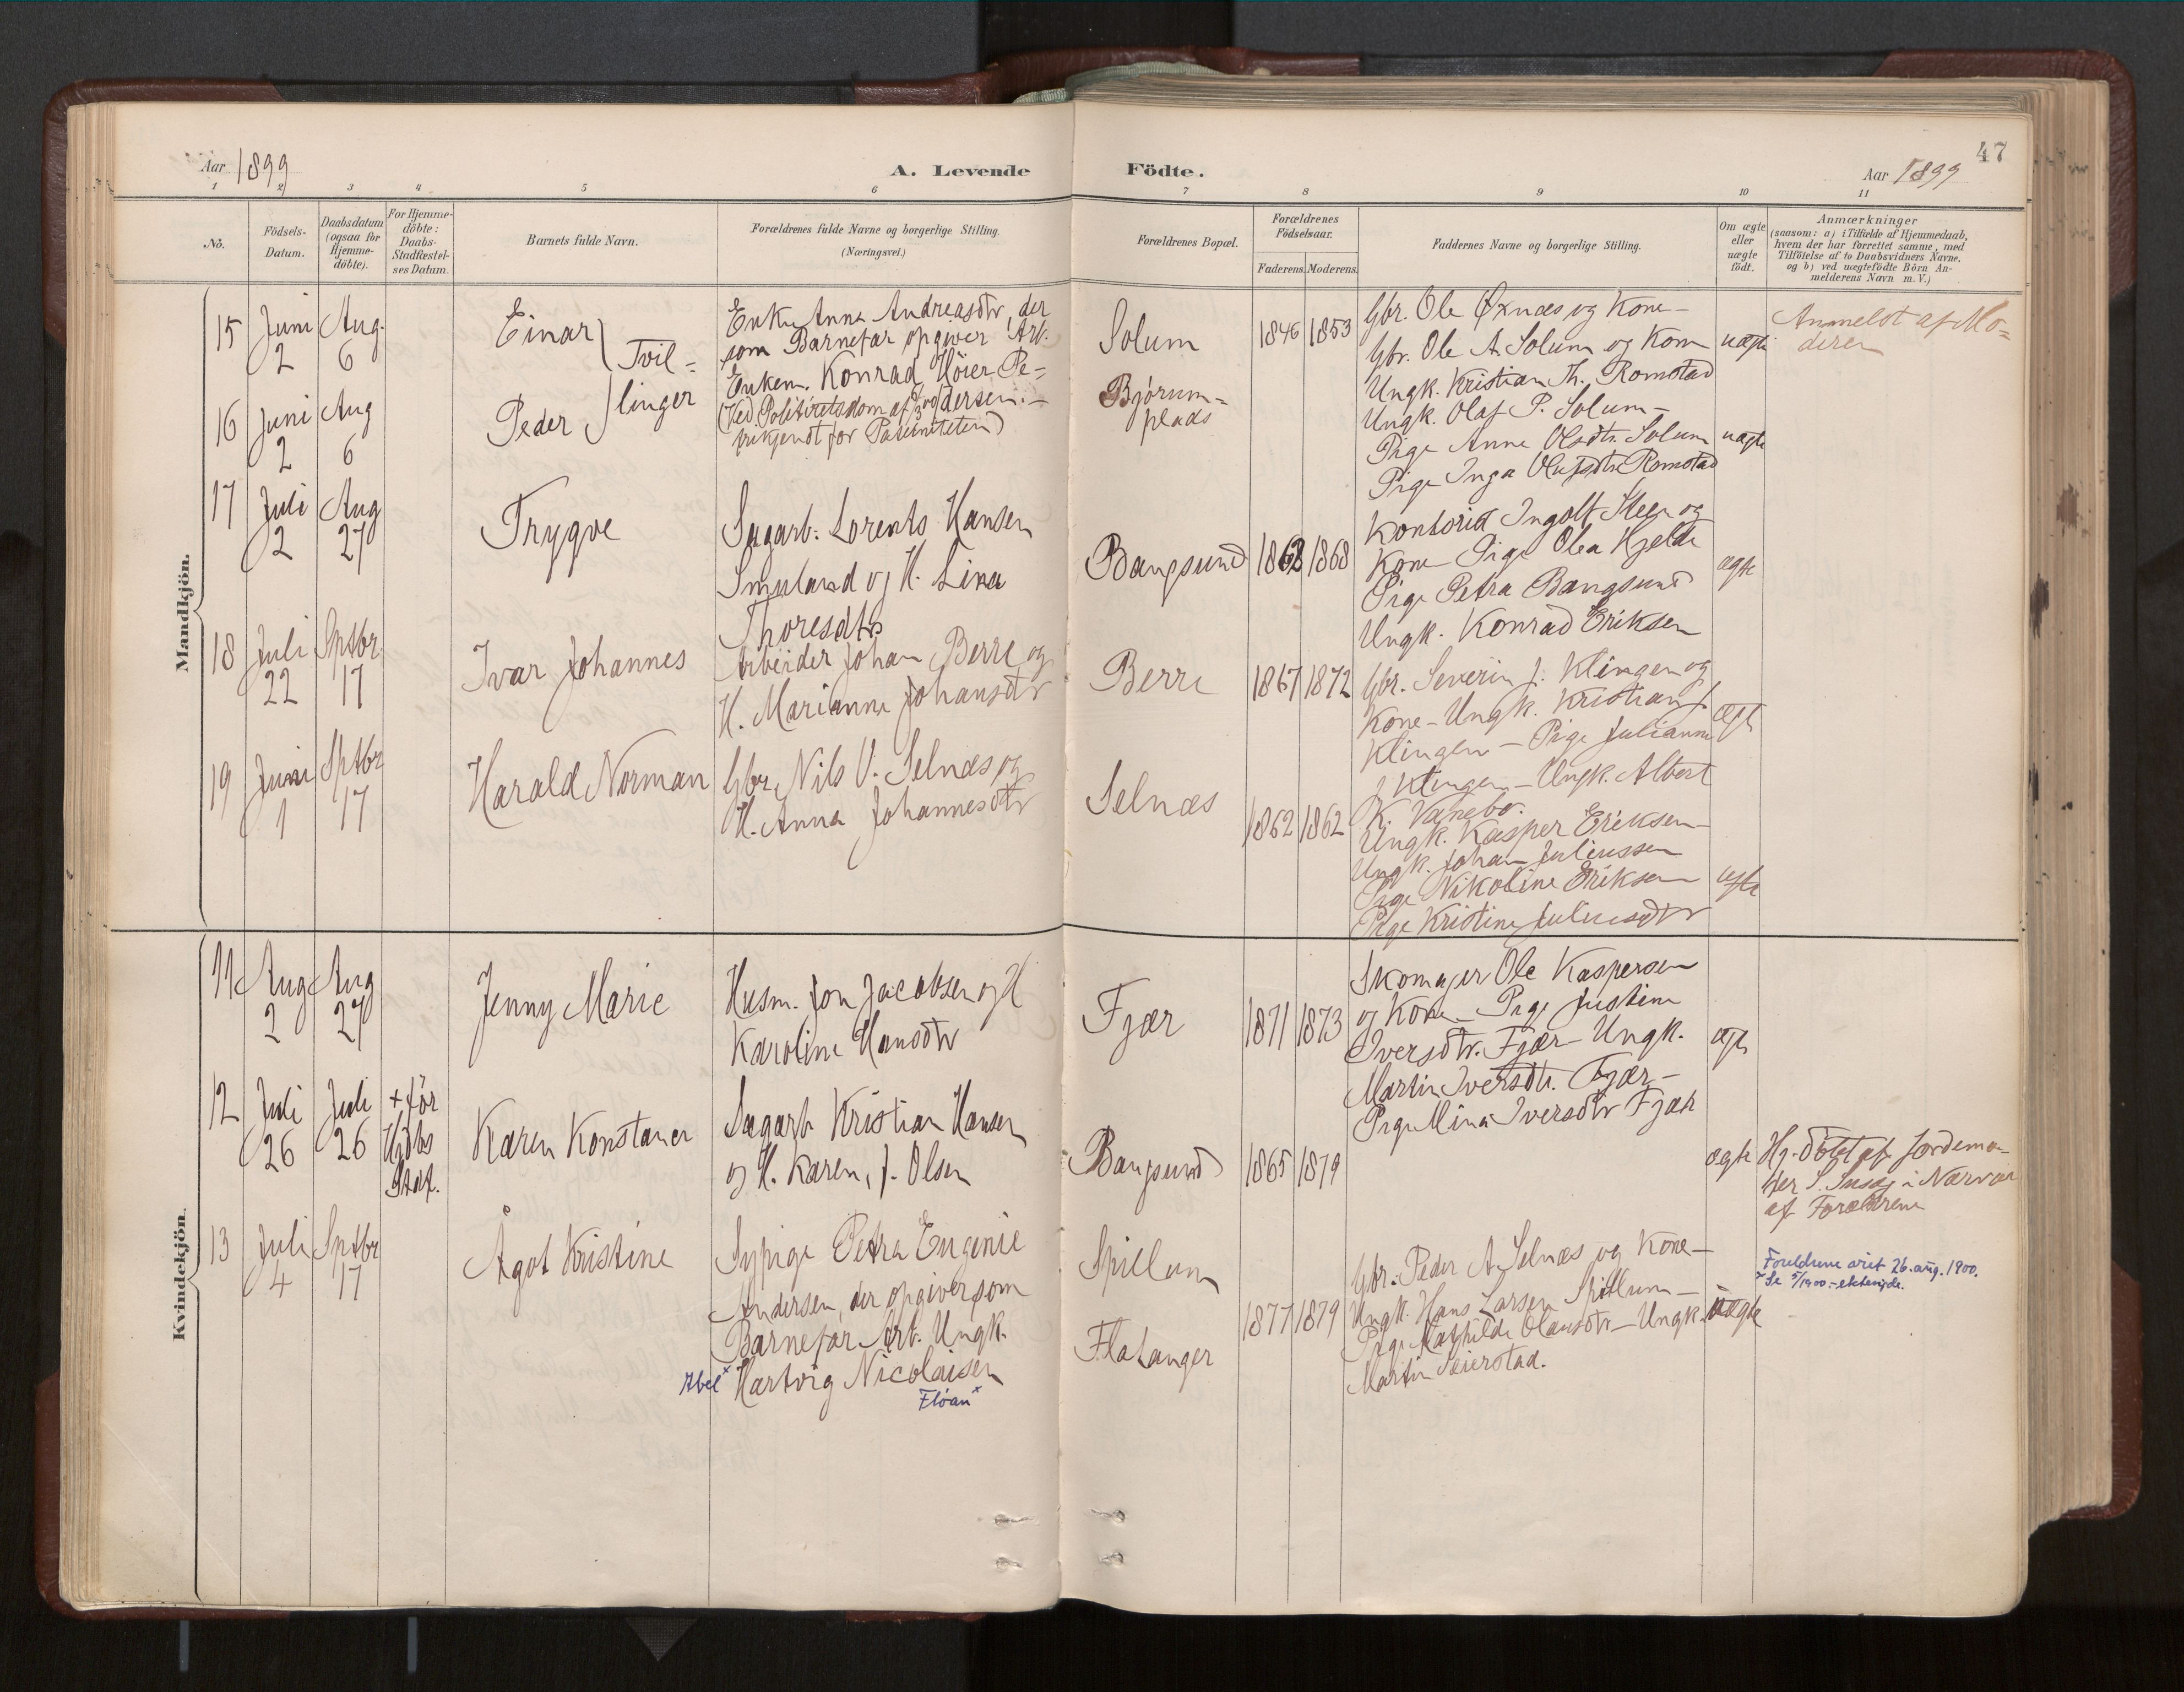 47
Aar 1899
A. Levende Födte.
Aar 1899
1 2 3 4 5 6 7 8 9 10 11
No.
Födsels-
Datum.
Daabsdatum
(ogsaa for
Hjemme-
döbte).
For Hjemme-
döbte:
Daabs-
Stadfæstel-
ses Datum.
Barnets fulde Navn.
Forældrenes fulde Navne og borgerlige Stilling.
(Næringsvei.)
Forældrenes Bopæl.
Forældrenes
Födselsaar.
Faderens. Moderens.
Faddernes Navne og borgerlige Stilling.
Om ægte
eller
uægte
födt.
Anmærkninger
(saasom: a) i Tilfælde af Hjemmedaab,
hvem der har forrettet samme, med
Tilföielse af to Daabsvidners Navne,
og b) ved uægtefödte Börn An-
melderens Navn m. V.)
Mandkjön.
15
Juni
2
Aug.
6
Einar
Tvil-
linger
Enke Anna Andreasdtr, der
som Barnefar opgiver Arb.
Enkem. Konrad Höier Pe-
dersen.-
(Ved Politiretsdom af
frikjendt for Paterniteten)
Solum
Björum-
plads
1846
1853
Gbr. Ole Øxnæs og Kone-
Gbr. Ole A. Solum og Kone
Ungk. Kristian Th. Romstad
Ungk. Olaf P. Solum-
Pige Anne Olsdtr. Solum
Pige Inga Olufsdtr. Romstad
uægte
Anmeldt af Mo-
deren
16
Juni
2
Aug
6
Peder
uægte
17
Juli
2
Aug
27
Trygve
Sagarb. Lorents Hansen
Smuland og H. Lina
Thoresdtr
Bangsund
1868
Kontorist Ingolf Steen og
Kone Pige Olea Hjelde
Pige Petra Bangsund
Ungk. Konrad Eriksen
ægte
18
Juli
22
Sptbr.
17
Ivar Johannes
Arbeider Johan Berre og
H. Marianne Johansdtr
Berre
1867
1872
Gbr. Severin J. Klingen og
Kone-Ungk. Kristian J.
Klingen - Pige Julianne
J. Klingen - Ungk. Albert
K. Vanebo.
ægte
19
Juni
1
Sptbr
17
Harald Norman
Gbr Nils V. Selnæs og
H. Anna Johannesdtr
Selnæs
1862
1862
Ungk. Kasper Eriksen-
Ungk. Johan Juliussen
Pige Nikoline Eriksen
Pige Kristine Juliusdtr
ægte
Kvindekjön.
11
Aug
2
Aug
27
Jenny Marie
Husm. Jon Jacobsen og H
Karoline Hansdtr
Fjær
1871
1873
Skomager Ole Kaspersen
og Kone - Pige Justine
Iversdtr. Fjær - Ungk.
Martin Iversdtr. Fjær-
Pige Mina Iversdtr Fjær
ægte
12
Juli
26
Juli
26
+ för
Hjdbs
Staf.
Karen Konstance
Sagarb Kristian Hansen
og H. Karen, f. Olsen
Bangsund
1865
1879
ægte
Hj. döbt af Jordemo-
der S. i Nærvær
af Forældrene
13
Juli
4
Sptbr
17
Ågot Kristine
Sypige Petra Eugenie
Andersen, der opgiver som
Barnefar Arb. Ungk.
Abel x Hartvig Nicolaisen
Flöan x
Spillum
Flatanger
1877
1879
Gbr. Peder A. Selnæs og Kone-
Ungk. Hans Larsen Spillum-
Pige Mathilde Olausdtr - Ungk.
Martin Seierstad.
uægte
Foreldrene viet 26. aug. 1900.
Se 5/1900. - ektevigde.